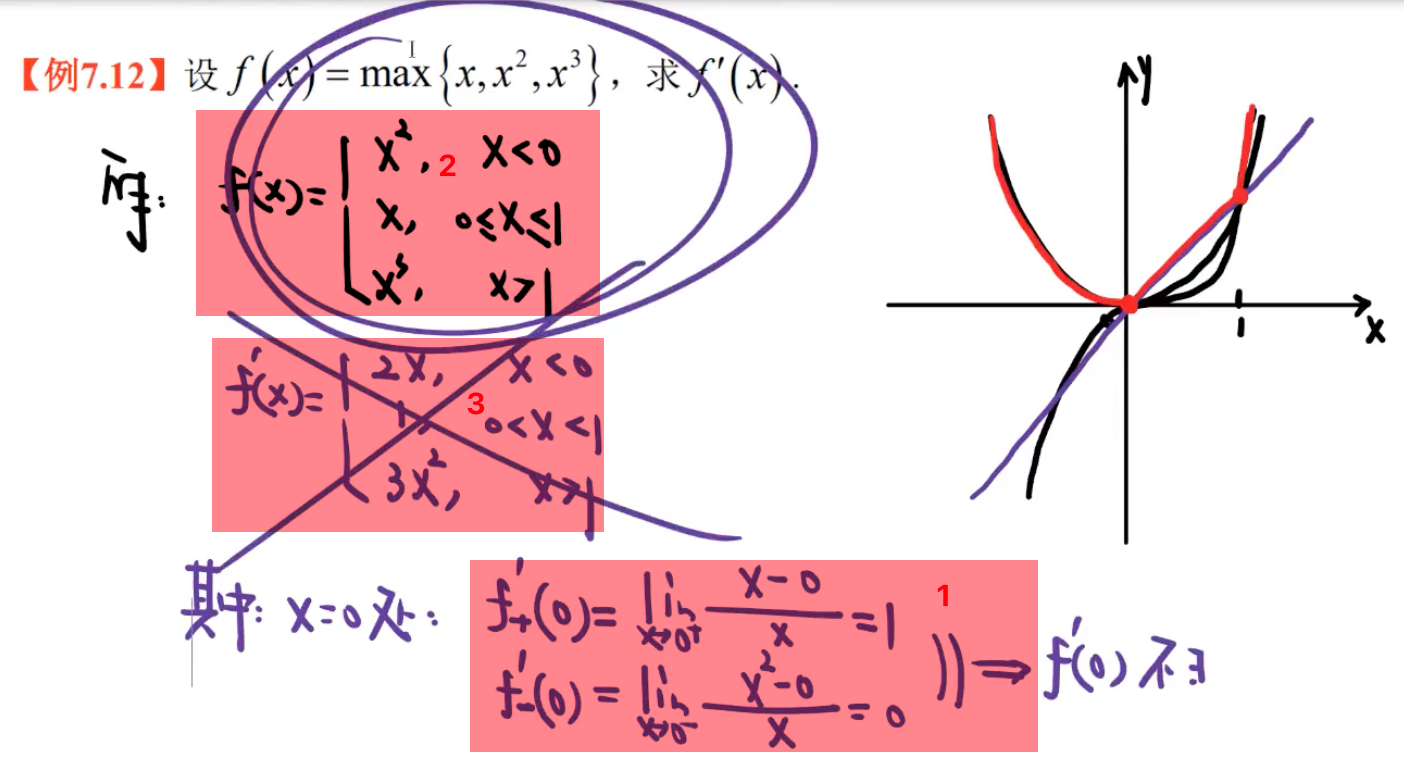 【例7.12】设 f(x) = max{x, x², x³}，求 f′(x).
解：f(x)= { x², x<0
x, 0≤x≤1
x³, x>1
2
f′(x)= { 2x, x<0
1, 0<x<1
3x², x>1
3
其中：x=0处：f′₊(0)= lim x→0⁺ (x-0)/x =1
f′₋(0)= lim x→0⁻ (x²-0)/x =0
1
⇒ f′(0) 不∃
y
x
1